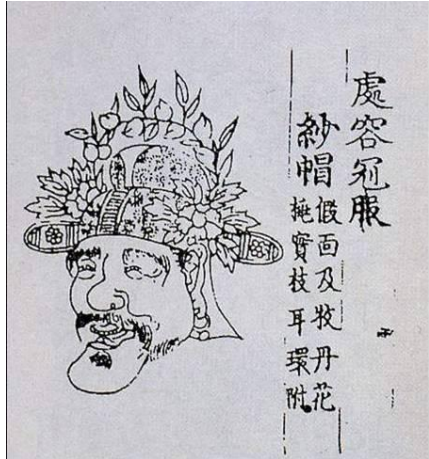 處容冠服
紗帽
假面及牧丹花
揷實枝耳環附